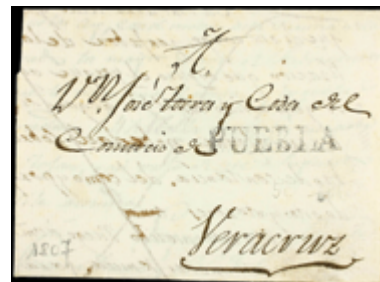 Dn. José Ytarra y Cosa del
Comercio de PUEBLA
Veracruz
1807